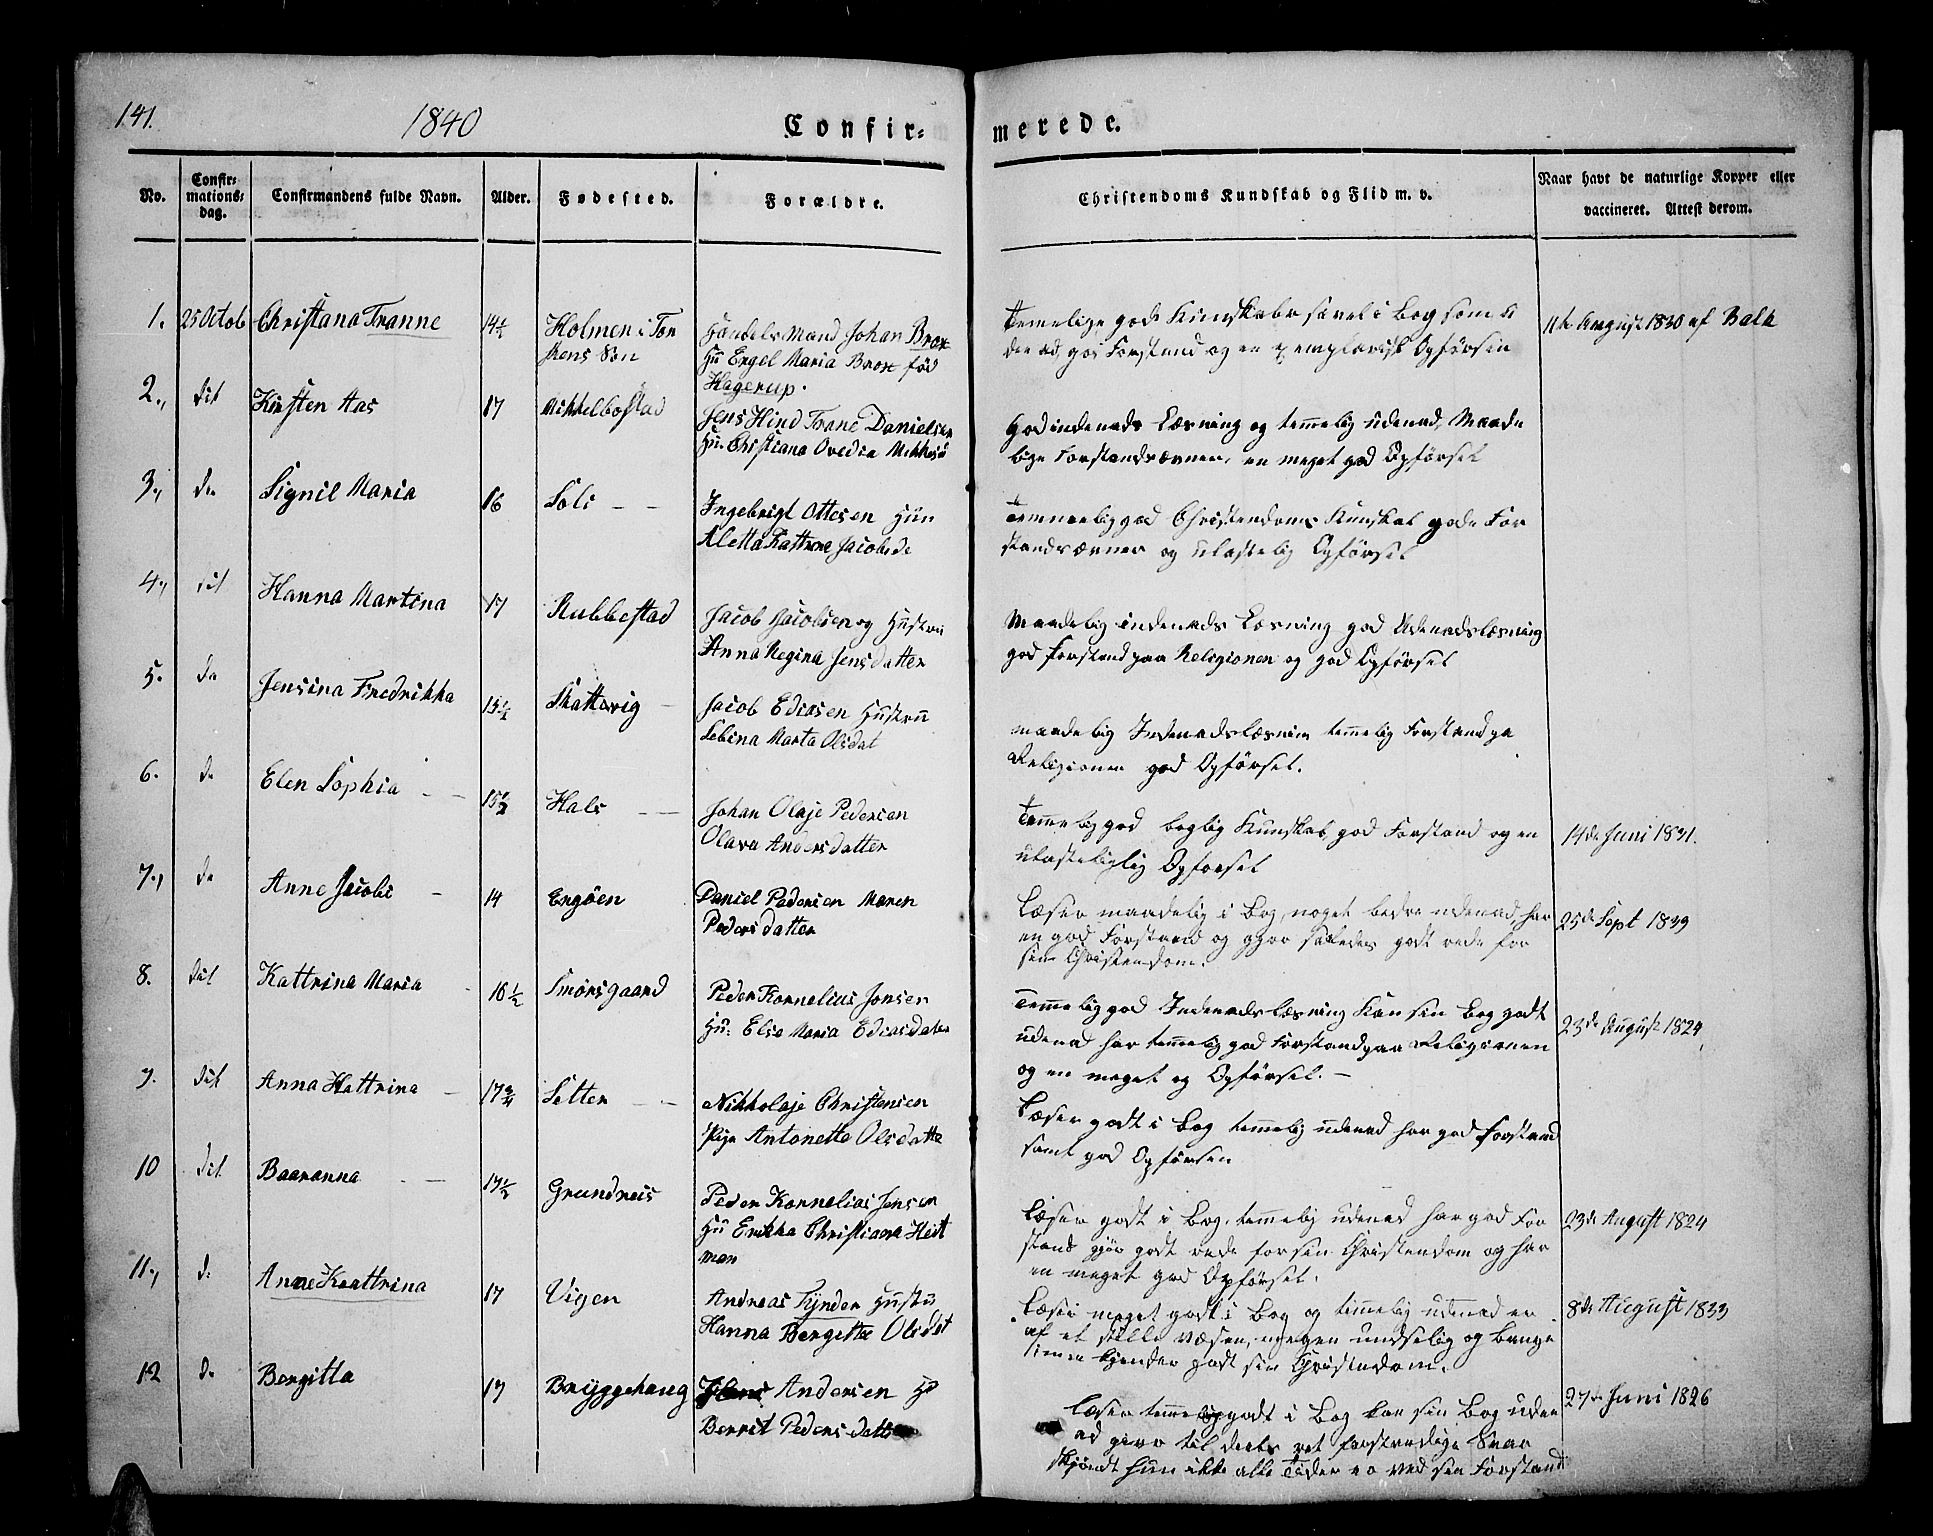 141.
1840
Confir-
merede.
No.
Confir-
mations-
dag.
Confirmandens fulde Navn.
Alder.
Fødested.
Forældre.
Christendoms Kundskab og Flid m. v.
Naar havt de naturlige Kopper eller
vaccineret. Attest derom.
1. 25 Octob Christana Tranne 14½ Holmen i Tor
skens Son
Handels Mand Johan Brox
Hu Engel Maria Brox fød
Hagerup.
temelige gode Kunskaber savel i Bog som u
den ad, god Forstand og en exemplarisk Opførsen
11te August 1830 af Balk
2., dit Kirsten Aas 17 Mikkelbostad
Jens Hind Trane Danielsen
Hu. Christiana Ovedia
God indenads Læsning og temelig udenad, Maade
lige Forstandsævner, en meget god Opførsel
3., do Signil Maria 16 Soli - -
Ingebrigt Ottesen Hun
Aletta
Temmelig god Christendoms Kunskab gode For
standsævner og ulastelig Opførsel
4., dit Hanna Martina 17 Rubbestad
Jacob Jacobsen og Hustru
Anna Regina Jensdatter
Maadelig indenads Læsning god Udenadslæsning
god forstand paa Religionen og god Opførsel
5. do Jensina Fredrikka 15½ Skattvig -
Jacob Ediasen Hustru
Lebina Marta Olsdat
maadelig Indenadslæsning temelig Forstand pa
Religionen god Opførsel.
6. do Elen Sophia - - 15½ Hals - -
Johan Olaje Pedersen
Olava Andersdatter
Temelig god boglig Kunskab, god Forstand og en
Opførsel
14de Juni 1831.
7., do Anne Jacobe - 14 Engøen
Daniel Pedersen Maren
Pedersdatter
Læser maadelig i Bog, noget bedre udenad, har
en god Forstand og gjør saaledes godt rede for
sin Christendom.
25de Sept 1839
8. dit Kattrina Maria - 16½ Smørsgaard
Peder Kornelius Jonsen
Hu: Else Maria Ediasdater
Temelig god Indenadslæsning Kan sin Bog godt
udenad har temelig god Forstand paa Religionen
og en meget Opførsel. -
23de August 1824
9. dit Anna Kattrina - 17¾ Setter - -
Nikkolaje Christensen
Pige Antonette Olsdatte
Læser godt i Bog temelig udenad har god forstand
samt god Opførsen
10 dit Baaranna - - 17½ Grundreis
Peder Kornelias Jensen
Hu Erikka Christiana Heit
man
Læser godt i Bog, temelig udenad har god For
stand gjør godt rede for sin Christendom og har
en meget god Opførsel.
23de August 1824
11., do Anne Kaattrina 17 Vigen
Andreas Tynder Hustru
Hanna Bergitta Olsdat
Læser meget godt i Bog og temelig udenad er
af et stille væsen, megen undselig og bange
kjender godt sin Christendom.
8de August 1833
12 do Bergitta 17 Bryggehaug
Andersen Hu
Berret Pedersdatt
Læser temelig godt i Bog kan sin Bog uden
ad giver til deels ret forstandige Svar
skjøndt hun ikke alle Tider er ved sin Forstand
27de Juni 1826